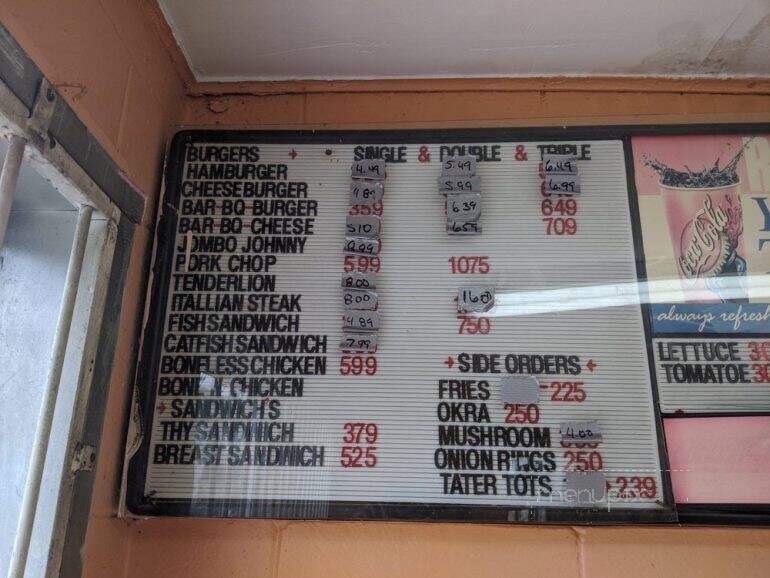 BURGERS SINGLE & DOUBLE & TRIPLE
HAMBURGER 4.49 5.49 6.49
CHEESEBURGER 4.89 5.99 6.99
BAR-BQ BURGER 359 6.39 649
BAR-BQ-CHEESE 510 659 709
JOMBO JOHNNY
PORK CHOP 599 1075
TENDERLION 8.00
ITALLIAN STEAK 8.00 16.0
FISH SANDWICH 4.89 750
CATFISH SANDWICH 7.99
BONELESS CHICKEN 599
BONE N CHICKEN
SANDWICH'S
THY SANDWICH 379
BREAST SANDWICH 525
SIDE ORDERS
FRIES 225
OKRA 250
MUSHROOM 4.00
ONION RINGS 250
TATER TOTS 239
Coca-Cola
always refresh
LETTUCE
TOMATOE
menupix